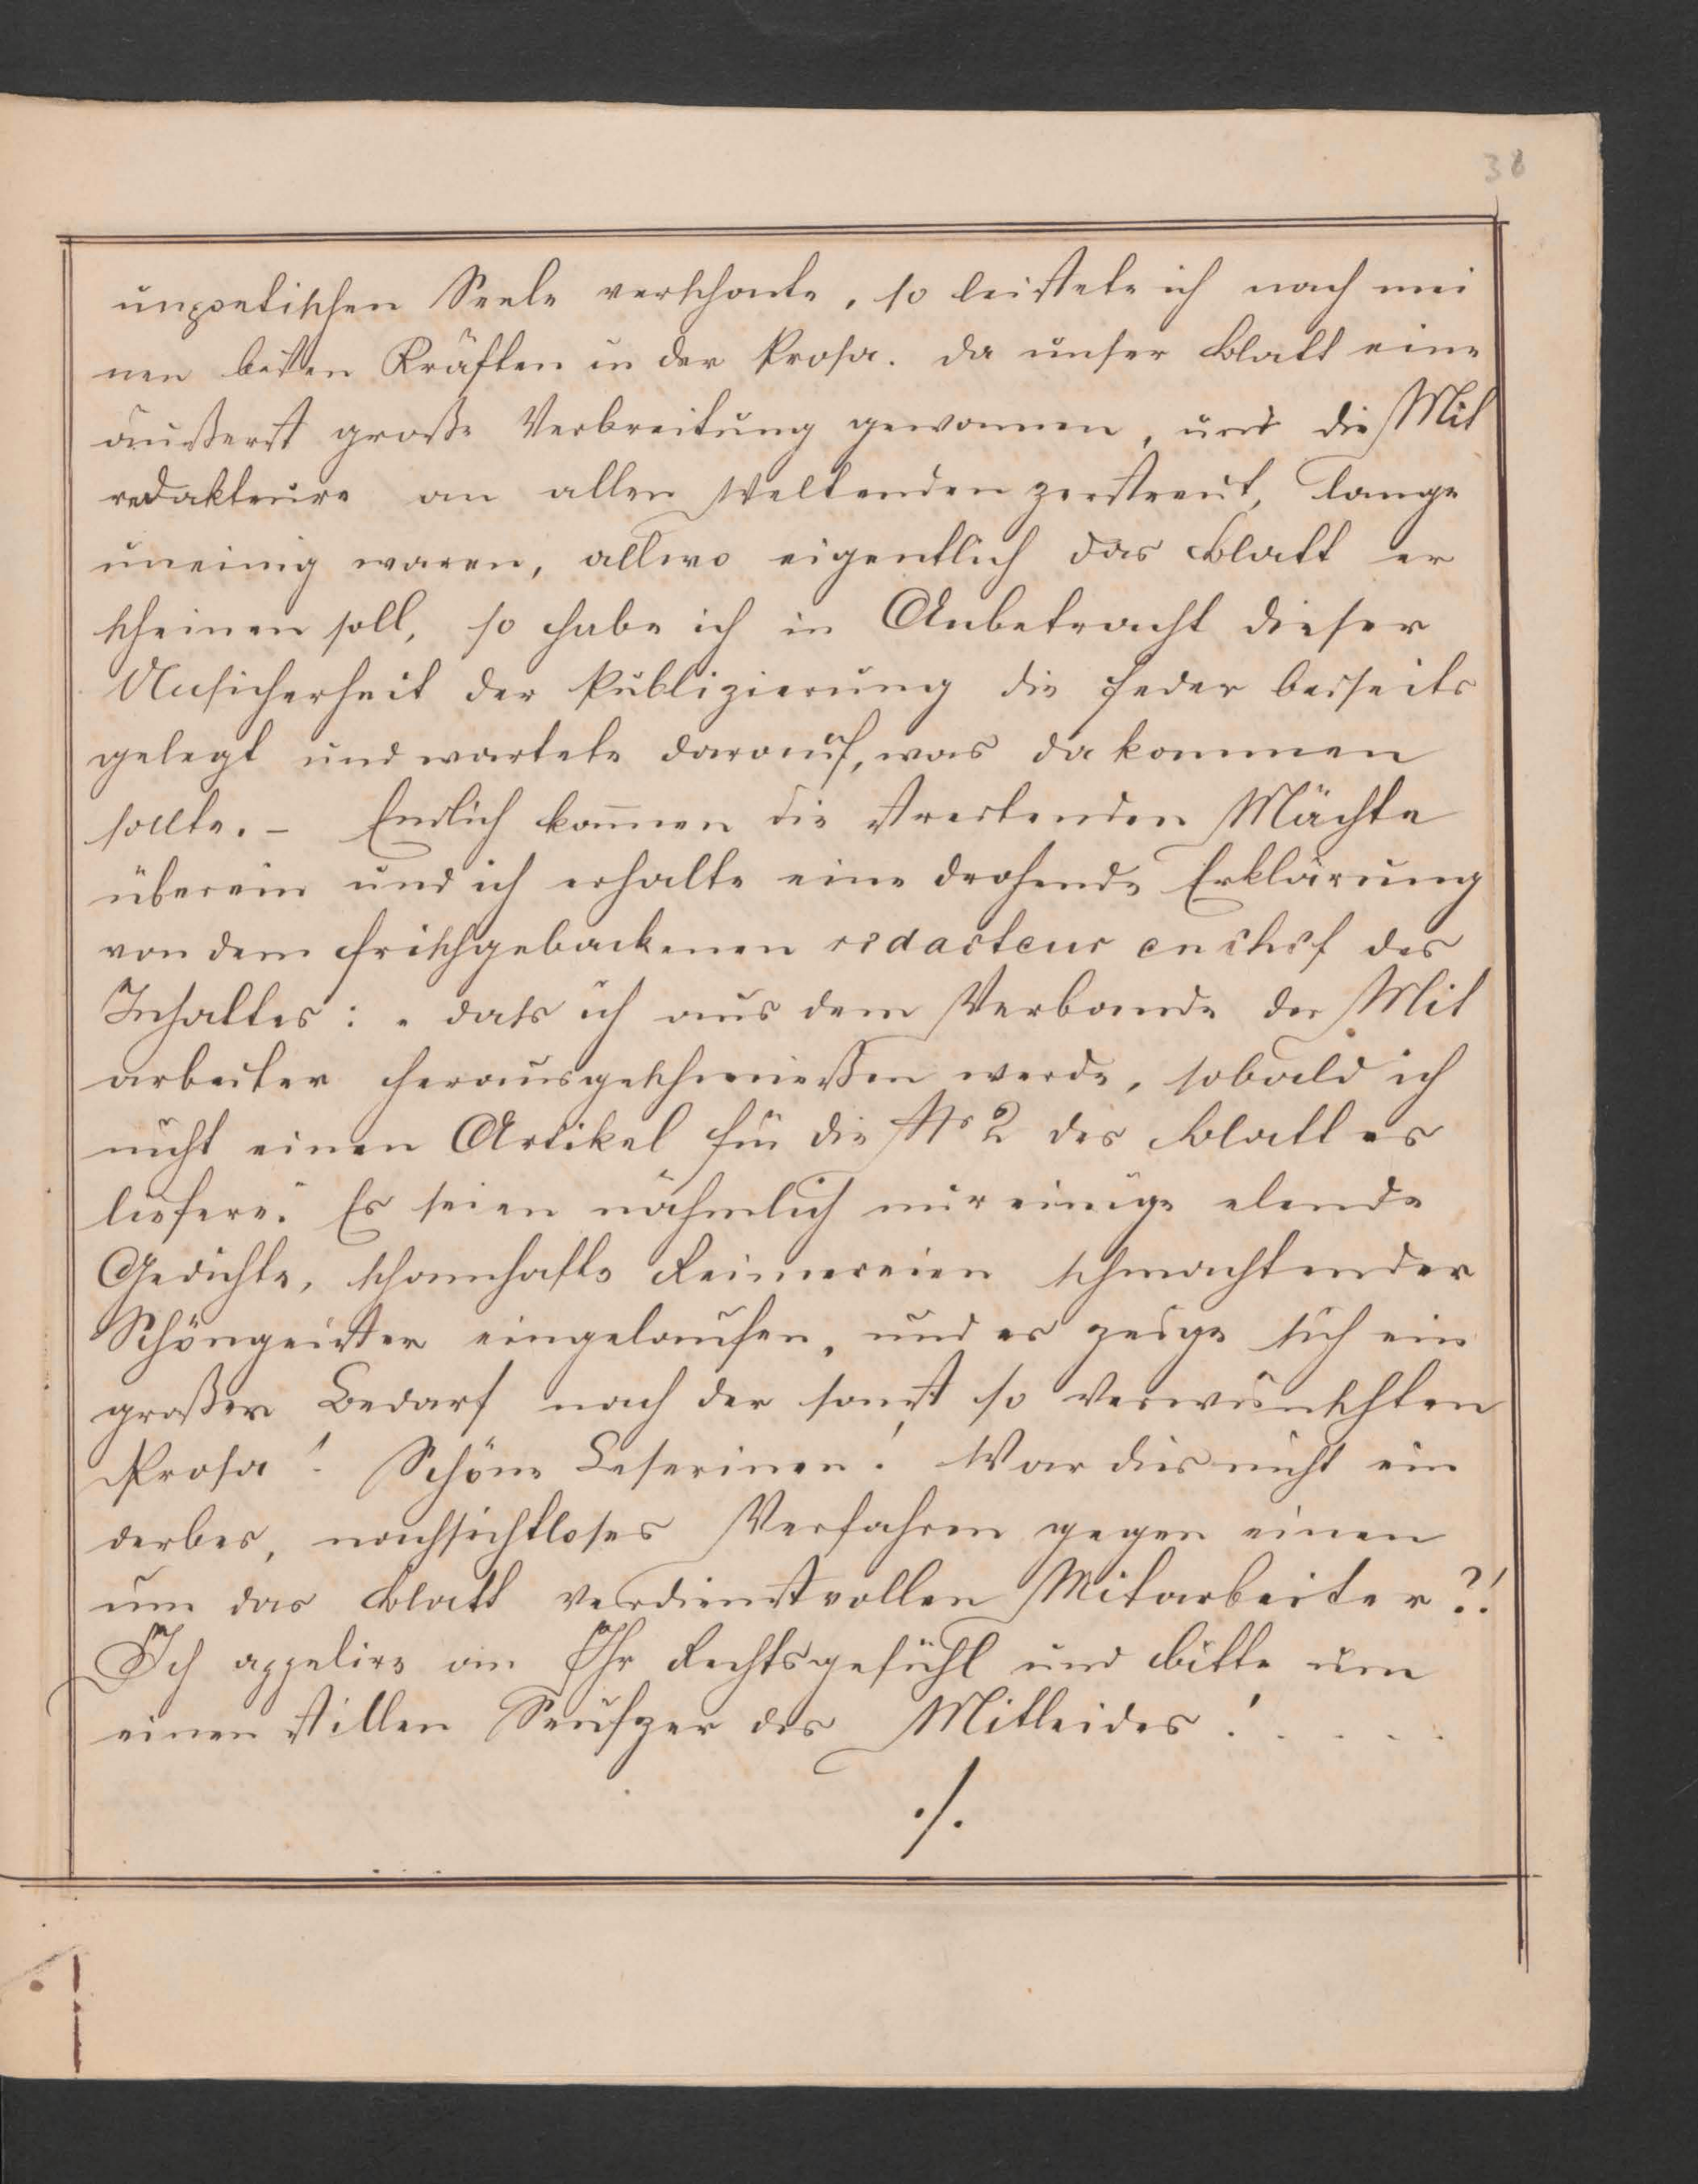 38
unpoetischen Seele verschonte, so leistete ich nach mei
nen besten Kräften in der Prosa. Da unser Blatt eine
äußerst große Verbreitung gewonnen, und die Mit
redakteure an allen Weltenden zerstreut, lange
uneinig waren, allwo eigentlich das Blatt er
scheinen soll, so habe ich in Anbetracht dieser
Unsicherheit der Publizierung die Feder beiseits
gelegt und wartete darauf, was da kommen
sollte. – Endlich kom̄en die streitenden Mächte
überein und ich erhalte eine drohende Erklärung
von dem frischgebackenen redacteur en chef des
Inhaltes: „dass ich aus dem Verbande der Mit
arbeiter herausgeschmießen werde, sobald ich
nicht einen Artikel für die No 2 des Blattes
liefere." Es seien nähmlich nur einige elende
Gedichte, schamhafte Reimereien schmachtender
Schöngeister eingelaufen, und es zeige sich ein
großer Bedarf nach der sonst so verwünschten
Prosa! Schöne Leserinen! War dies nicht ein
derbes, nachsichtloses Verfahren gegen einen
um das Blatt verdienstvollen Mitarbeiter?!
Ich appelire an Ihr Rechtsgefühl und bitte um
einen stillen Seufzer des Mitleides! . . . . .
./.